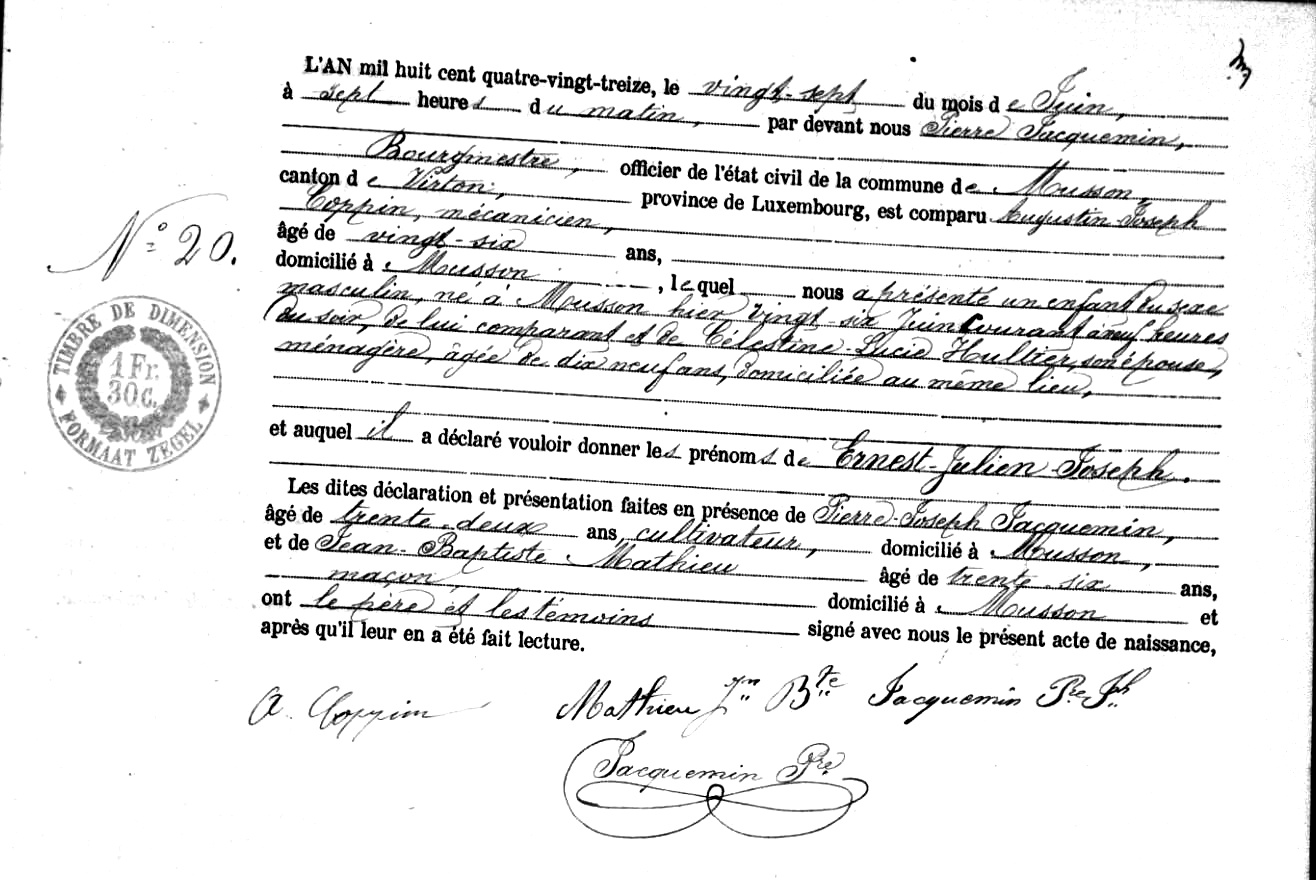 L'AN mil huit cent quatre-vingt-treize, le vingt-sept du mois de Juin,
à sept heures du matin, par devant nous Pierre Jacquemin,
Bourgmestre, officier de l'état civil de la commune de Musson,
canton de Virton, province de Luxembourg, est comparu Augustin Joseph
Coppin, mécanicien,
âgé de vingt-six ans,
domicilié à Musson, lequel nous a présenté un enfant du sexe
masculin, né à Musson hier vingt-six Juin courant à neuf heures
du soir, de lui comparant et de Célestine Lucie Hultier, son épouse,
ménagère, âgée de dix neuf ans, domiciliée au même lieu,
et auquel il a déclaré vouloir donner les prénoms de Ernest-Julien-Joseph.
Les dites déclaration et présentation faites en présence de Pierre-Joseph Jacquemin,
âgé de trente-deux ans, cultivateur, domicilié à Musson,
et de Jean-Baptiste Mathieu âgé de trente-six ans,
maçon, domicilié à Musson et
ont le père et les témoins signé avec nous le présent acte de naissance,
après qu'il leur en a été fait lecture.
N° 20.
TIMBRE DE DIMENSION
1 Fr.
30 C.
FORMAAT ZEGEL
A. Coppin Mathieu Jn Bte Jacquemin Pre Jph
Jacquemin Pre